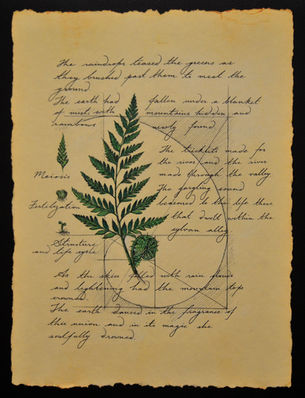 The raindrops teased the greens as
they brushed past them to meet the
ground
The earth had fallen under a blanket
of mist with mountains hidden and
rainbows newly found
The trickles made for
the river and the river
made through the valley
The gurgling sound
to the life there
that dwelt within the
sylvan alley
Meiosis
Fertilization
Structure
and life cycle
As the skies filled with rain clouds
and lightening had the mountain tops
crowned
The earth danced in the fragrance of
this union and in its magic she
soulfully drowned